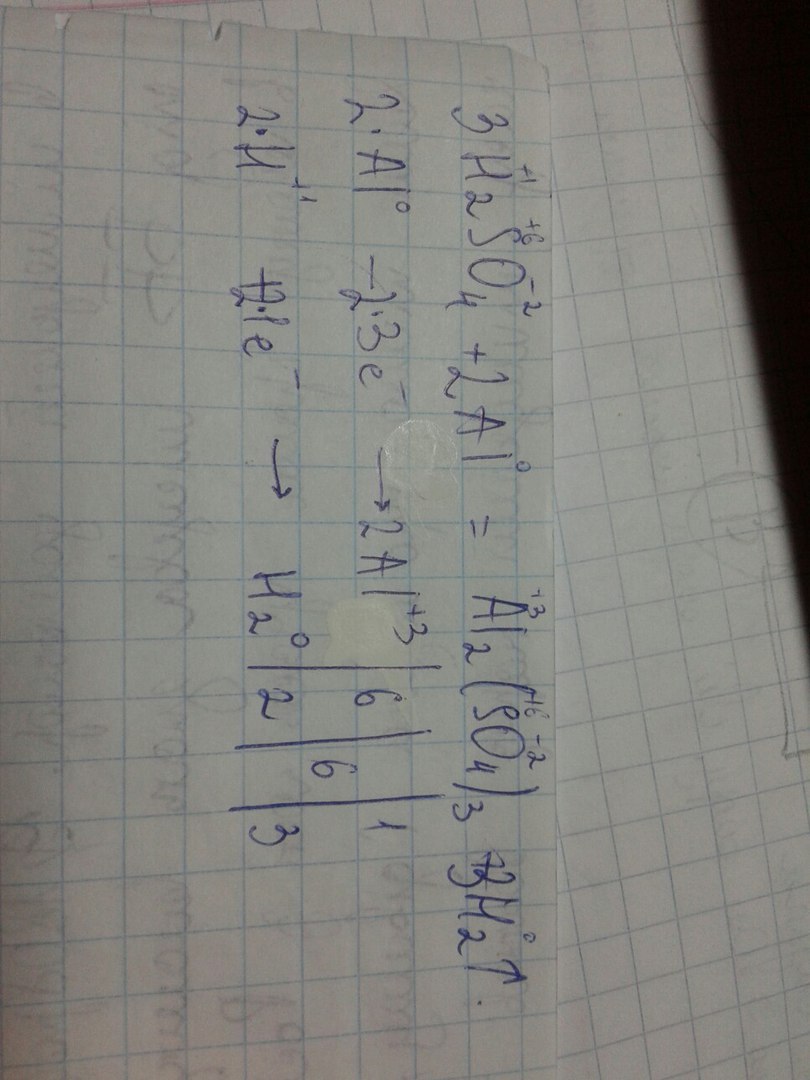 3H₂⁺¹S⁺⁶O₄⁻² + 2Al⁰ = Al₂⁺³(S⁺⁶O₄⁻²)₃ + 3H₂⁰↑.
2·Al⁰ −2·3e⁻ → 2Al⁺³ | 6 | 6 | 1
2·H⁺¹ +2·1e⁻ → H₂⁰ | 2 | 3